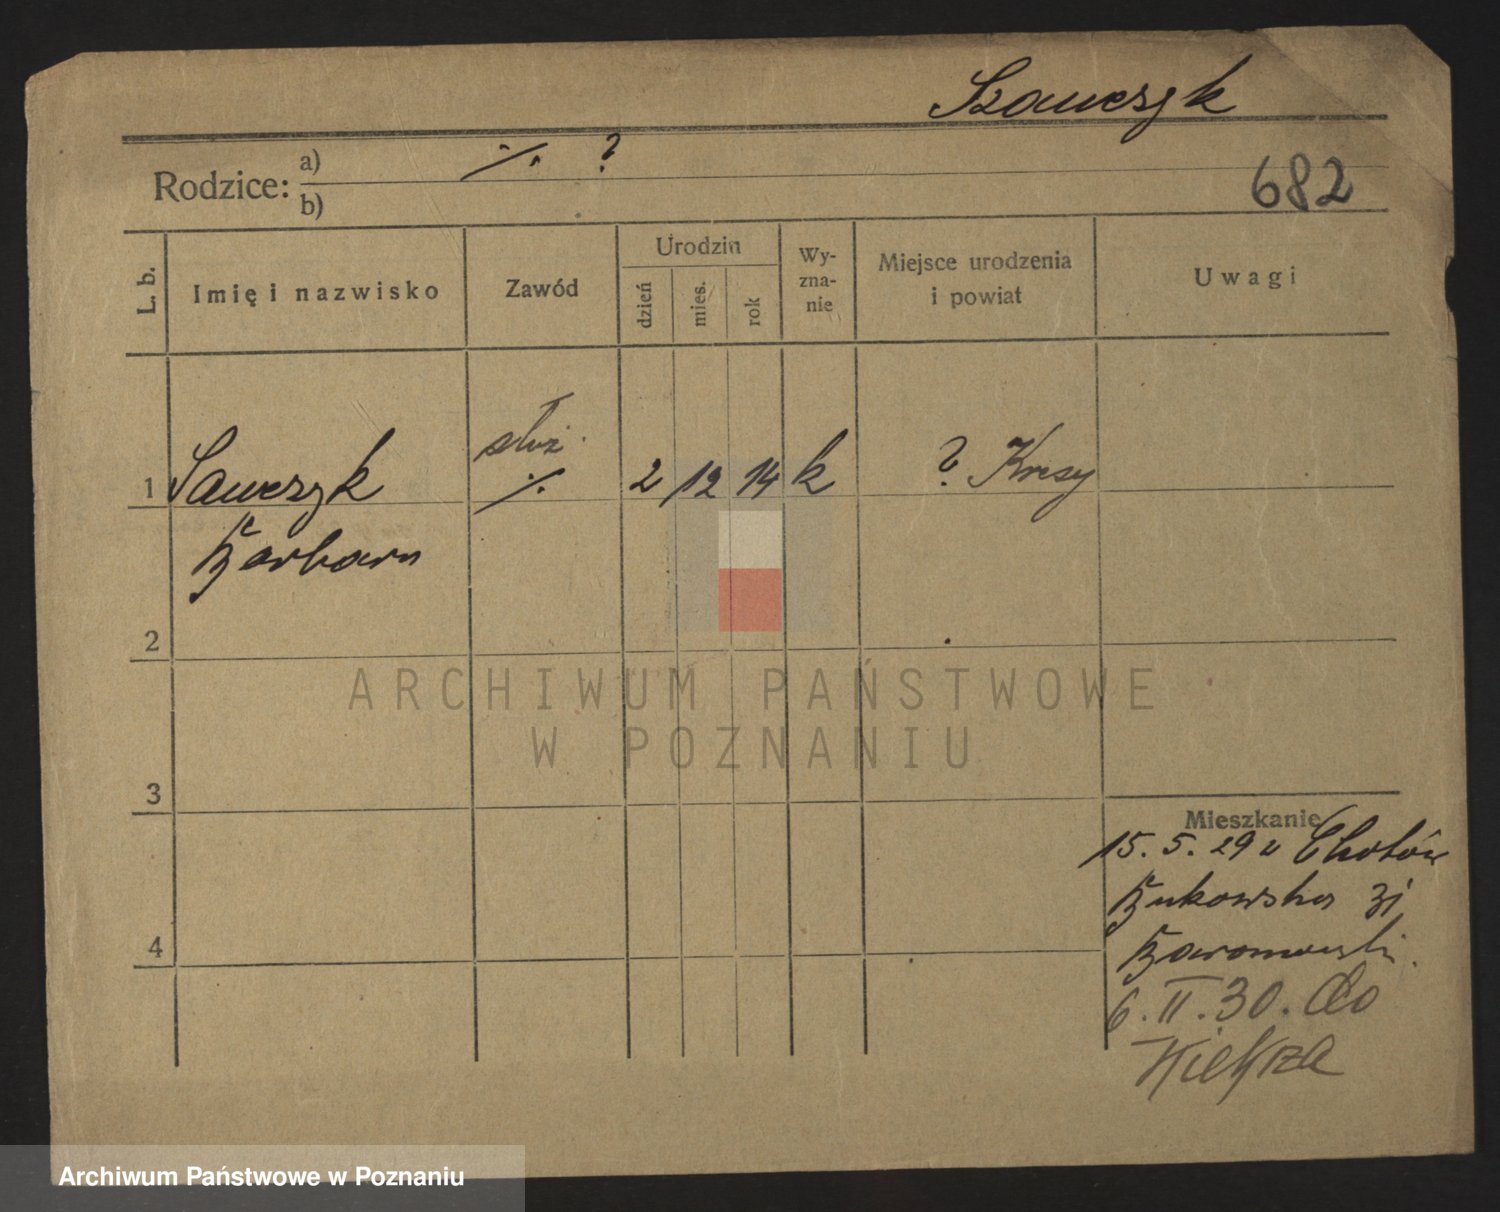 Szawczyk
Rodzice: a) ·/. ?
b)
682
L. b.
Imię i nazwisko
Zawód
Urodzin
dzień
mies.
rok
Wy-
zna-
nie
Miejsce urodzenia
i powiat
Uwagi
służ.
1 Sawczyk ·/. 2 12 14 k ? Kresy
Barbara
2
3
4
Mieszkanie
15. 5. 29 z
Bukowska 31
6. II. 30. do
Kiekrza
ARCHIWUM PAŃSTWOWE
W POZNANIU
Archiwum Państwowe w Poznaniu